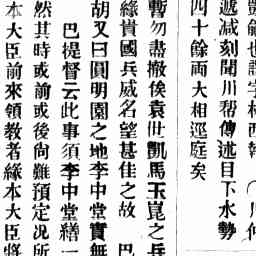 也 字林西報 川
遞減刻聞川帮傳述目下水勢
四十餘両大相逕庭矣
暫勿盡撤俟袁世凱馬玉崑之兵
緣貴國兵威名望甚佳之故 巴
胡又曰圓明園之地李中堂實無
巴提督云此事須李中堂繕一
然其時或前或後尚難預定况所
本大臣前來領教者緣本大臣將